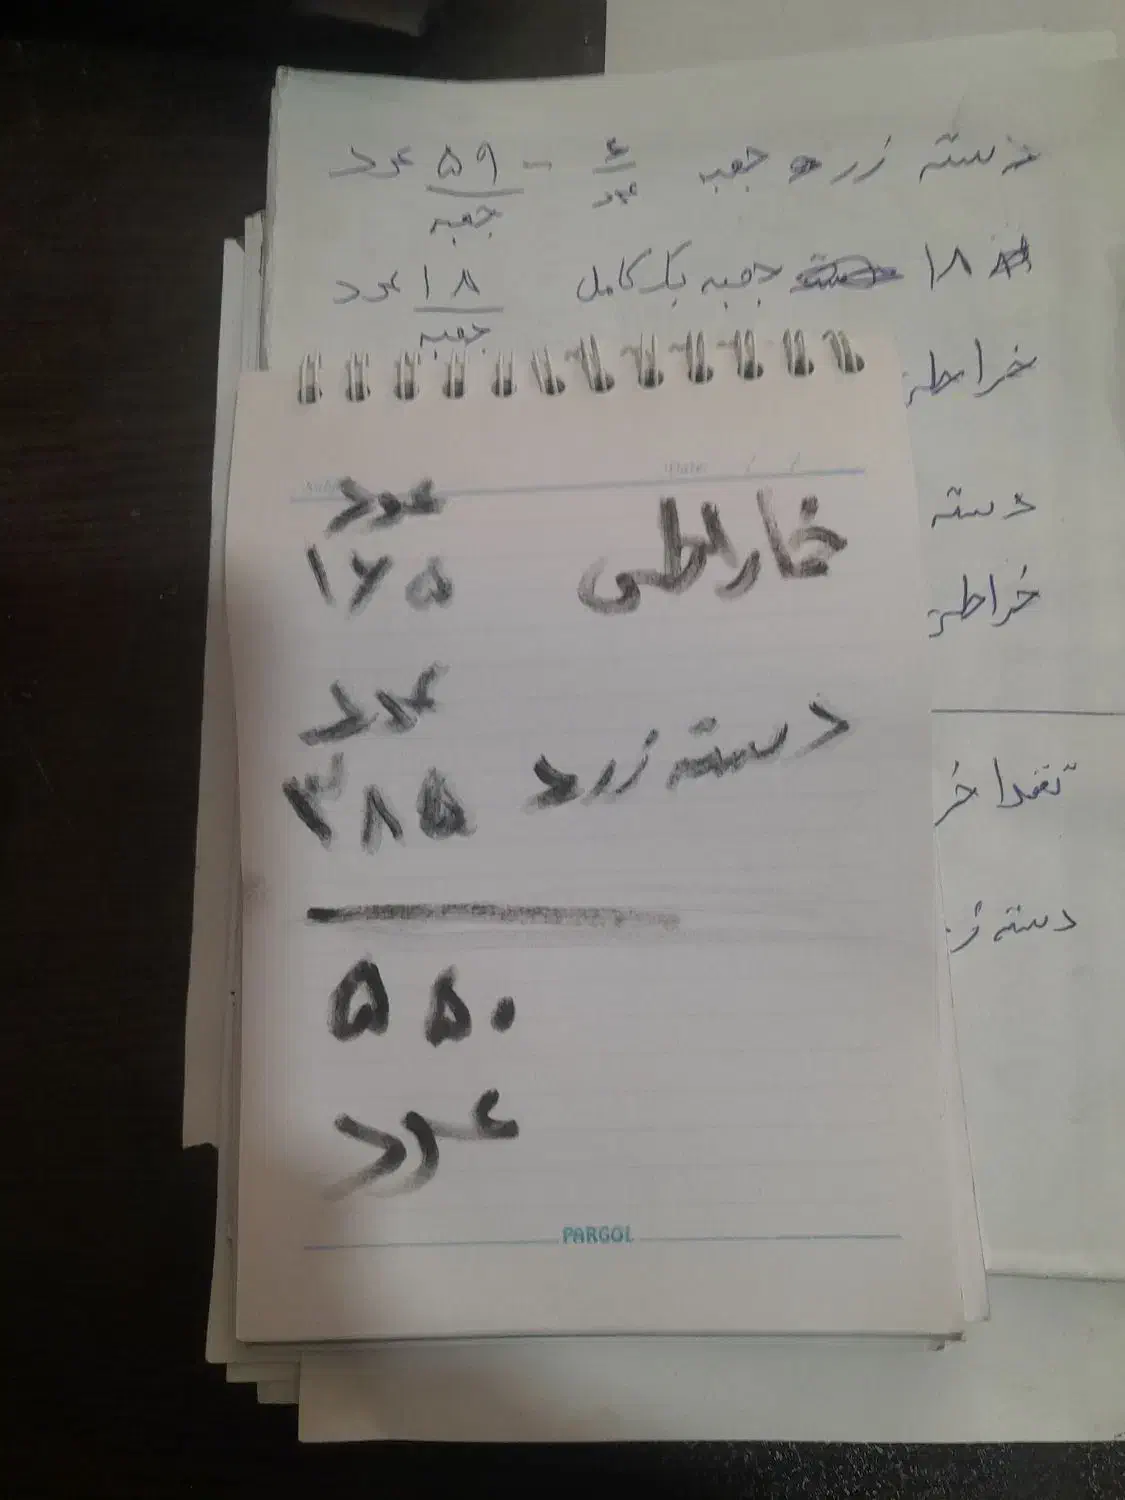 دسته زرد جعبه ۶ عدد - ۵۹ جعبه عدد
۱۸ جعبه یک کامل ۱۸ جعبه عدد
خراطی
دسته
خراطی
دسته
Date: / /
خاراطی عدد
۱۶۵
دسته زرد عدد
۳۸۵
۵۵۰
عدد
PARGOL